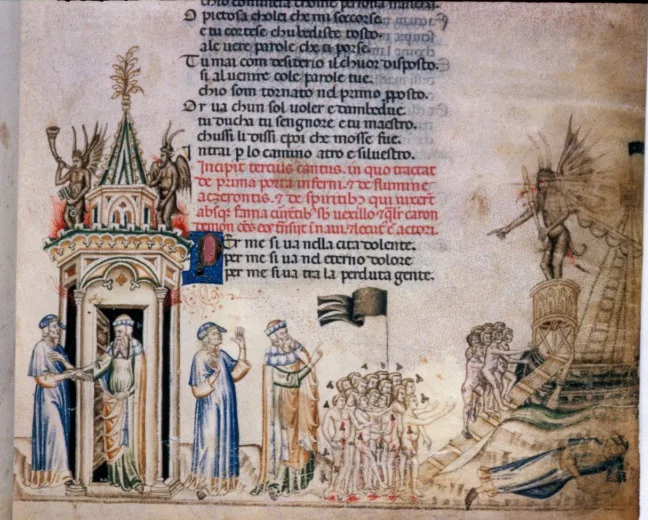 O pietosa cholei che mi soccorse.
e tu cortese chubediste tosto.
ale uere parole che ti porse.
Tu mai com desiterio il chuor disposto.
si al uenire cole parole tue.
chio som tornato nel primo pposto.
Or ua chun sol uoler e dambedue.
tu ducha tu sengnore e tu maestro.
chussi li dissi e poi che mosse fue.
Intrai p lo camino atro e siluestro.
Incipit tercius cantus. in quo tractat
de prima porta inferni. 7 de flumine
aczerontis. 7 de spiritib3 qui uixerunt
absq3 fama uexillo 7 caron
demon naui. 7 auctori.
Per me si ua nella cita dolente.
per me si ua nel eterno dolore
per me si ua tra la perduta gente.